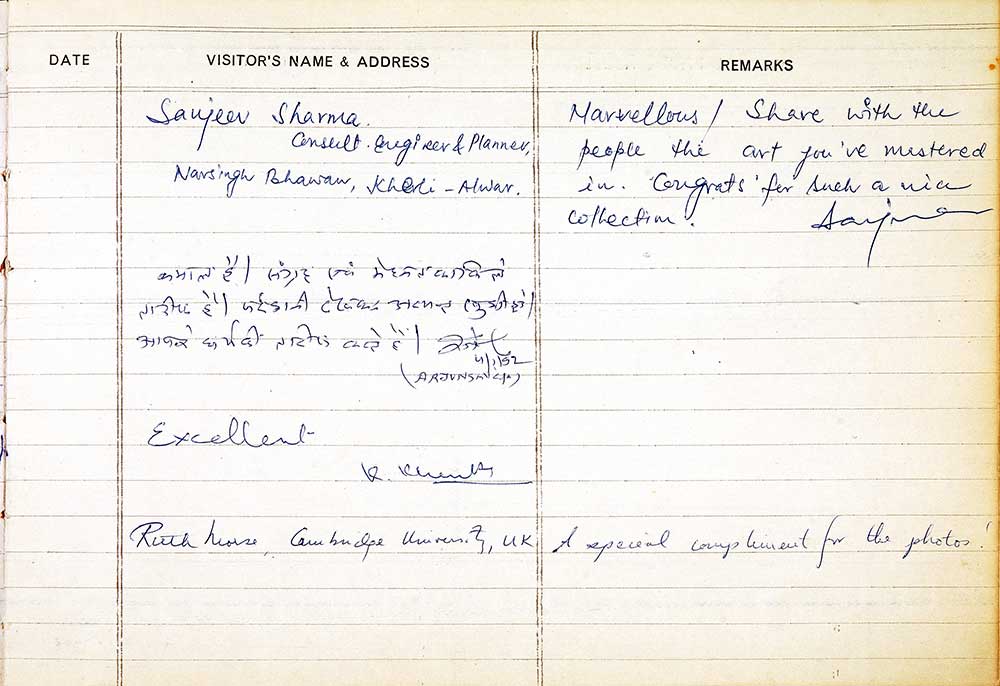 DATE
VISITOR'S NAME & ADDRESS
REMARKS
Sanjeev Sharma.
Consult. Engineer & Planner,
Narsingh Bhawan, Kherli - Alwar.
Marvellous! Share with the
people the art you've mastered
in. 'Congrats' for such a nice
collection!
कमाल है।
तारीफ है।
आपके कार्य की तारीफ करते हैं।
(ARJUNSINGH)
Excellent
K.
Ruth Morse, Cambridge University, UK
A special compliment for the photos!